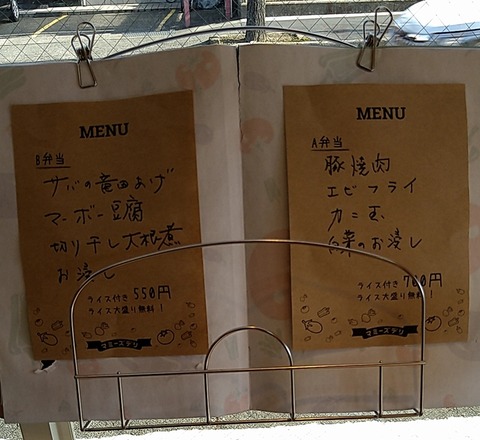 MENU
B弁当
サバの竜田あげ
マーボー豆腐
切り干し大根煮
お浸し
ライス付き 550円
ライス大盛り無料！
マミーズデリ
MENU
A弁当
豚焼肉
エビフライ
カニ玉
白菜のお浸し
ライス付き 700円
ライス大盛り無料！
マミーズデリ